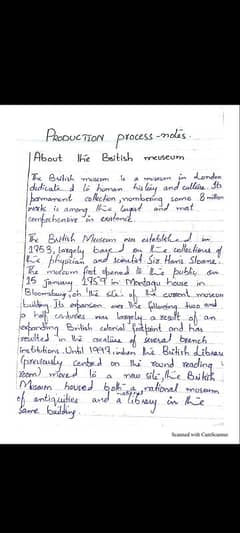 PRODUCTION process-notes.
About the British meuseum
The British museum is a museum in London
dedicated to human history and culture. Its
permanent collection, numbering some 8 million
work is among the largest and most
comprehensive in existence.
The British Museum was established in
1753, largely based on the collections of
the physician and scientist Sir Hans Sloane.
The museum first opened to the public on
15 january 1759 in Montagu house in
Bloomsbury, on the site of the current museum
building. Its expansion over the following two and
a half centuries was largely a result of an
expanding British colonial footprint and has
resulted in the creation of several branch
institutions. Until 1997, when the British Library
(previously centred on the round reading
room) moved to a new site, the British
Museum housed both a national museum
of antiquities and a national library in the
same building.
Scanned with CamScanner